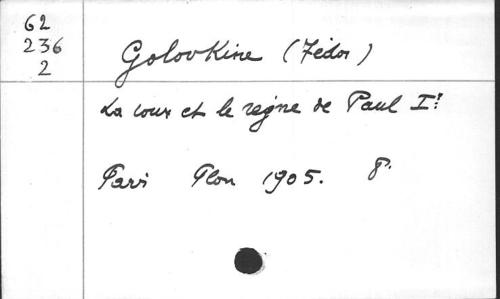 62
236
2
Golovkine (Fédor)
La cour et le regne de Paul I!
Paris Plon 1905. 8.